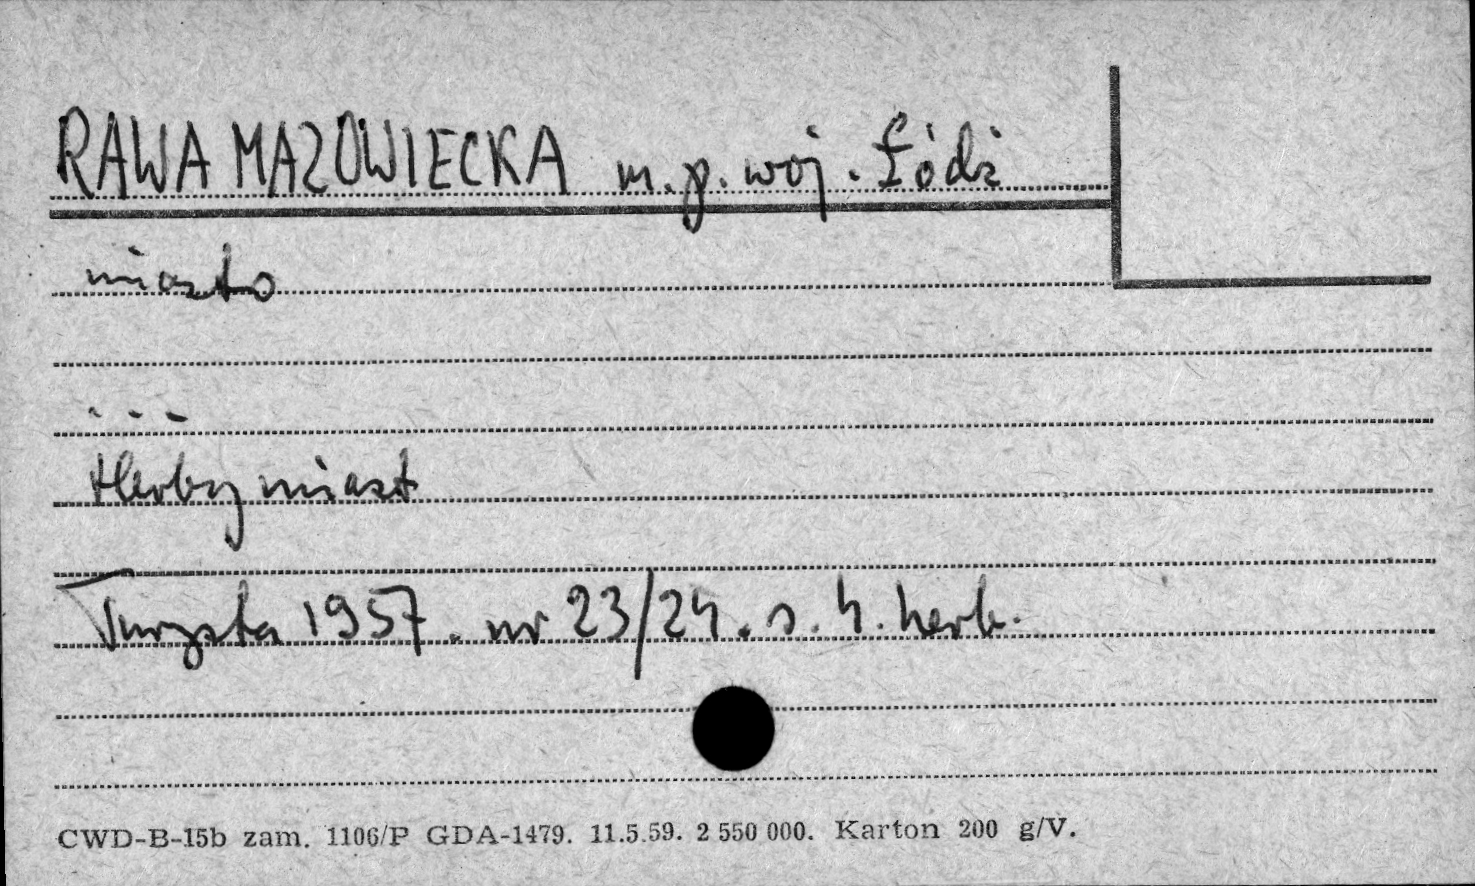 RAWA MAZOWIECKA m. p. woj. Łódź
miasto
...
Herby miast
Turysta 1957. nr 23/24. s. 4. herb.
CWD-B-15b zam. 1106/P GDA-1479. 11.5.59. 2 550 000. Karton 200 g/V.